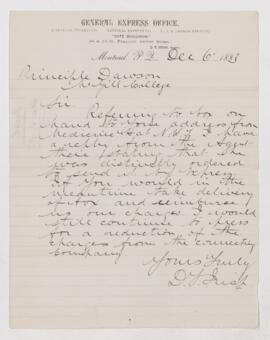 GENERAL EXPRESS OFFICE.
Montreal, P.Q. Dec 6 1883
Principle Dawson
McGill College
Sir.
Refering to Box on
hand to your address from
Medicine Hat N.W.T. I have
a reply from the Agent
there stating that he
was distinctly ordered
to send it by Express
if you would in the
meantime take delivery
of Box and reimburse
us our charges I would
still continue to press
for a reduction of the
charges from the connecting
Company.
Yours Truly